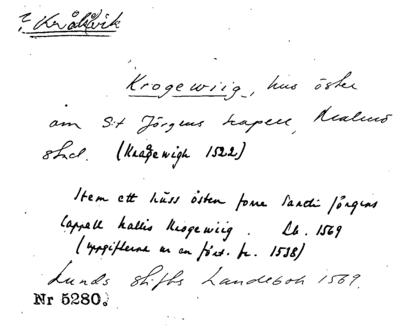 ? Kråkvik
Krogewiig, hus öster
om S:t Jörgens kapell, Malmö
stad. (Kragewigh 1522)
Item ett hüss östen form Sancti Jörgens
Cappell kallis Krogewiig. Lb. 1569
(uppgifterna ur en fört. fr. 1538)
Lunds stifts Landebok 1569.
Nr 5280.